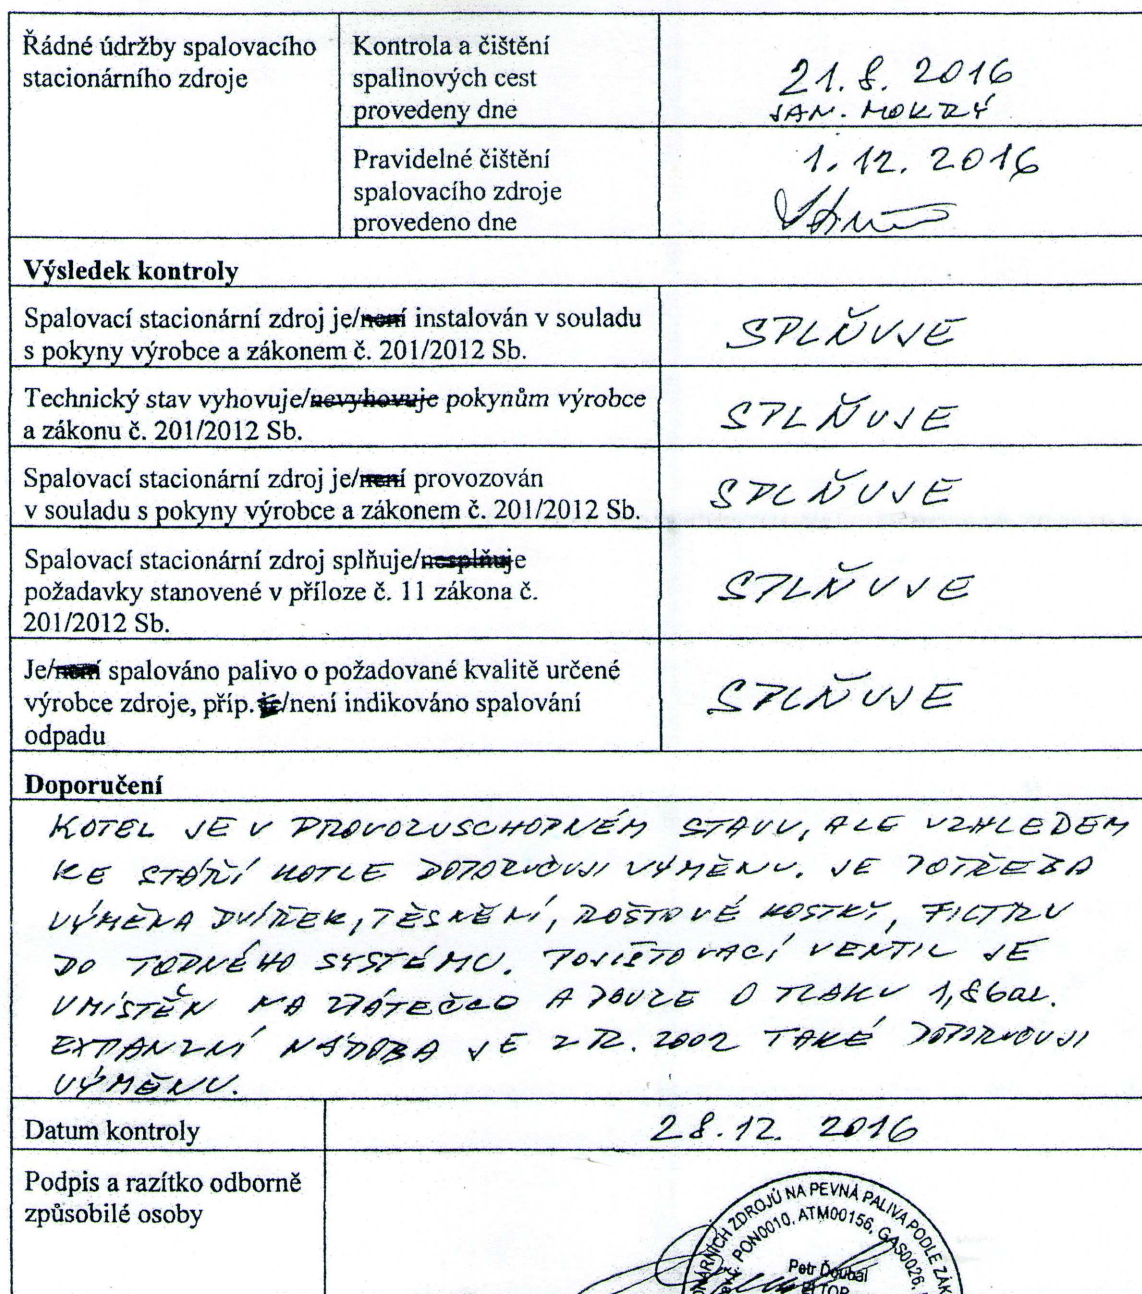 Řádné údržby spalovacího
stacionárního zdroje
Kontrola a čištění
spalinových cest
provedeny dne
21. 8. 2016
JAN. MOKRÝ
Pravidelné čištění
spalovacího zdroje
provedeno dne
1. 12. 2016
Výsledek kontroly
Spalovací stacionární zdroj je/není instalován v souladu
s pokyny výrobce a zákonem č. 201/2012 Sb.
SPLŇUJE
Technický stav vyhovuje/nevyhovuje pokynům výrobce
a zákonu č. 201/2012 Sb.
SPLŇUJE
Spalovací stacionární zdroj je/není provozován
v souladu s pokyny výrobce a zákonem č. 201/2012 Sb.
SPLŇUJE
Spalovací stacionární zdroj splňuje/nesplňuje
požadavky stanovené v příloze č. 11 zákona č.
201/2012 Sb.
SPLŇUJE
Je/není spalováno palivo o požadované kvalitě určené
výrobce zdroje, příp. je/není indikováno spalování
odpadu
SPLŇUJE
Doporučení
KOTEL JE V PROVOZUSCHOPNÉM STAVU, ALE VZHLEDEM
KE STÁŘÍ KOTLE DOPORUČUJI VÝMĚNU. JE POTŘEBA
VÝMĚNA DVÍŘEK, TĚSNĚNÍ, ROŠTOVÉ KOSTKY, FILTRU
DO TOPNÉHO SYSTÉMU. POJIŠTOVACÍ VENTIL JE
UMÍSTĚN NA ZPÁTEČCE A POUZE O TLAKU 1,8 bar.
EXPANZNÍ NÁDOBA JE Z R. 2002 TAKÉ DOPORUČUJI
VÝMĚNU.
Datum kontroly
28. 12. 2016
Podpis a razítko odborně
způsobilé osoby
ZDROJŮ NA PEVNÁ PALIVA PODLE
PON0010, ATM00156, GAS0026,
Petr Ďoubal